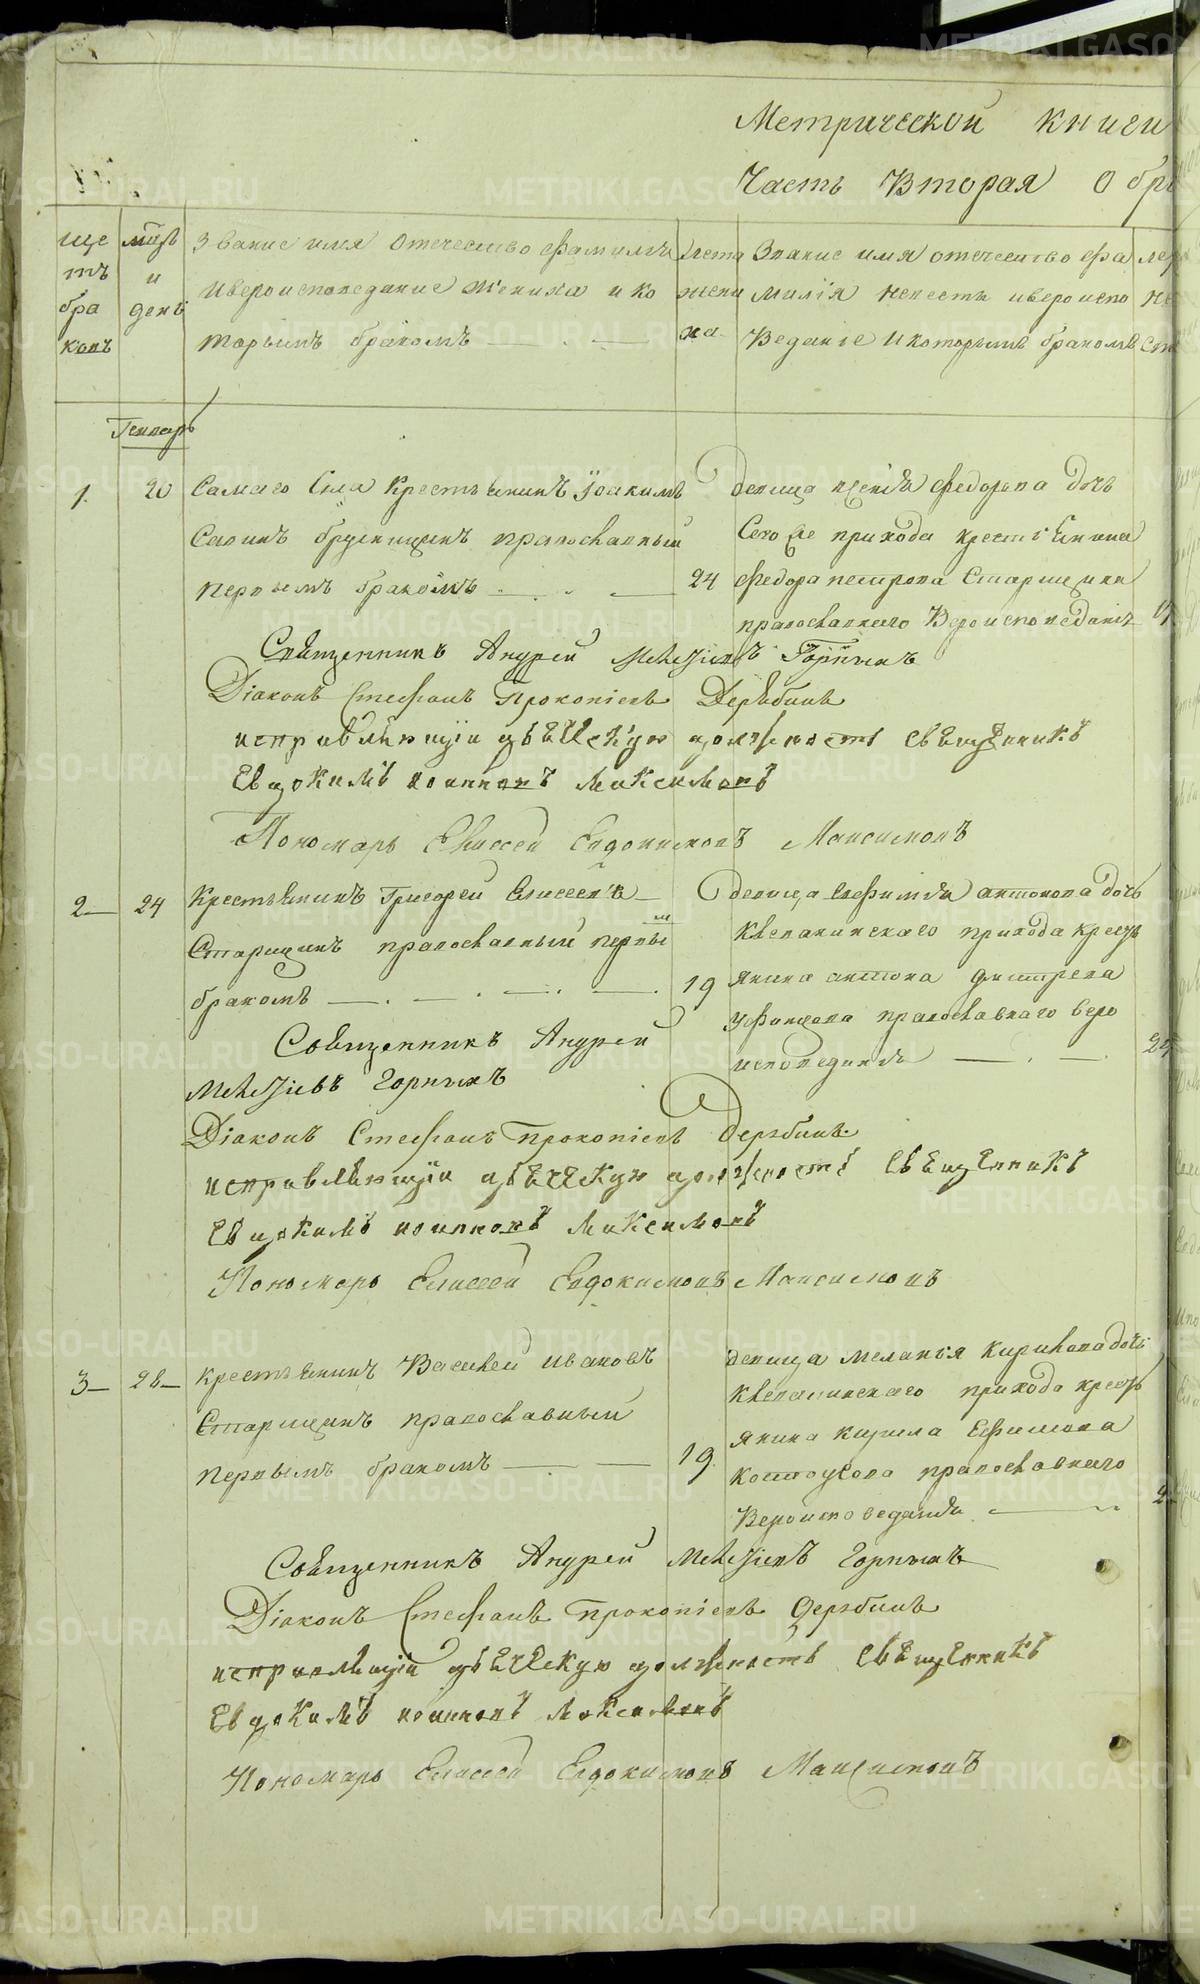 Метрической книги
Часть Вторая О бра
Щетъ браковъ
мѣцъ и день
Звание имя отечество фамилия
и вероисповедание жениха и ко
торымъ бракомъ
лета жени ха
Звание имя отечество фа
милія невесты и вероиспо
ведание и которымъ бракомъ
Генварь
1. 20 Самаго Села Крестьянинъ Іоакимъ
Бруснишинъ православный
первымъ бракомъ 24
девица Федорова дочь
Сего же прихода крестьянина
Федора петрова Старицина
православнаго Вероисповедания
Священникъ Андрей Горныхъ
Діаконъ Стефанъ Прокопіевъ Дерябинъ
исправляющій дьяческую должность священникъ
Евдокимъ Максимовъ
Пономарь Елисей Евдокимовъ Максимовъ
2 24 Крестьянинъ Григорей Елисеевъ
Старицинъ православный первым
бракомъ 19
девица Евфимия антонова дочь
прихода кресть
янина антона
православнаго веро
исповедания 24
Священникъ Андрей
Горныхъ
Діаконъ Стефанъ Прокопіевъ Дерябинъ
исправляющій дьяческую должность священникъ
Евдокимъ Максимовъ
Пономарь Елисей Евдокимовъ Максимовъ
3 28 крестьянинъ Василей Ивановъ
Старицинъ православный
первымъ бракомъ 19
девица Меланья Кирилова дочь
прихода кресть
янина кирила Ефимова
православнаго
Вероисповедания
Священникъ Андрей Горныхъ
Діаконъ Стефанъ Прокопіевъ Дерябинъ
исправляющій дьяческую должность священникъ
Евдокимъ Максимовъ
Пономарь Елисей Евдокимовъ Максимовъ
METRIKI.GASO-URAL.RU